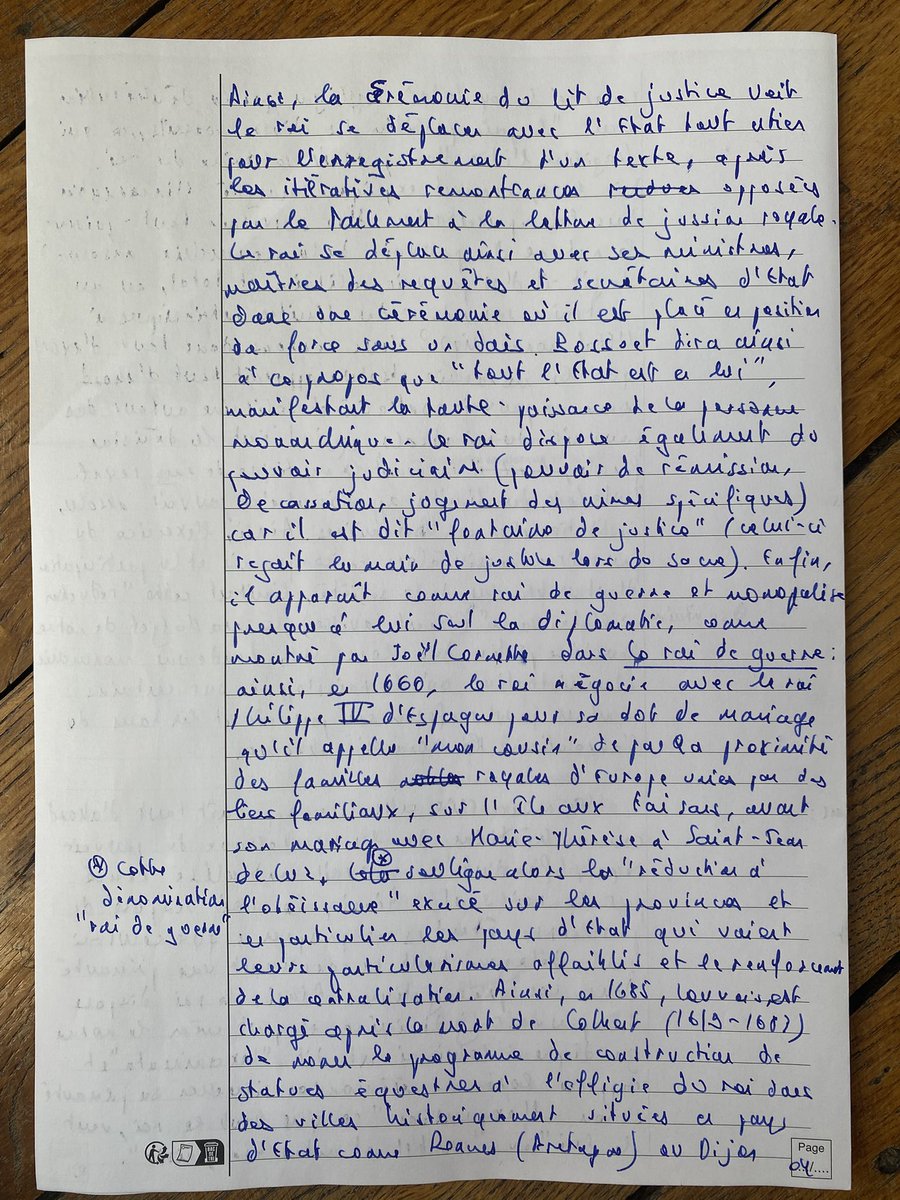 Ainsi, la cérémonie du lit de justice voit
le roi se déplacer avec l'Etat tout entier
pour l'enregistrement d'un texte, après
les itératives remontrances rendues opposées
par le Parlement à la lettre de jussion royale.
Le roi se déplace ainsi avec ses ministres,
maîtres des requêtes et secrétaires d'Etat
dans une cérémonie où il est placé en position
de force sous un dais. Bossuet dira ainsi
à ce propos que "tout l'Etat est en lui",
manifestant la toute-puissance de la personne
monarchique. Le roi dispose également du
pouvoir judiciaire (pouvoir de rémission,
de cassation, jugement des crimes spécifiques)
car il est dit "fontaine de justice" (celui-ci
reçoit la main de justice lors du sacre). Enfin,
il apparaît comme roi de guerre et monopolise
presque à lui seul la diplomatie, comme
montré par Joël Cornette dans Le roi de guerre :
ainsi, en 1660, le roi négocie avec le roi
Philippe IV d'Espagne pour sa dot de mariage
qu'il appelle "mon cousin" de par la proximité
des familles nobles royales d'Europe unies par des
liens familiaux, sur l'île aux Faisans, avant
son mariage avec Marie-Thérèse à Saint-Jean
de Luz. souligne alors la "réduction à
l'obéissance" exercé sur les provinces et
en particulier les pays d'Etat qui voient
leurs particularismes affaiblis et le renforcement
de la centralisation. Ainsi, en 1685, Louvois est
chargé après la mort de Colbert (1619-1683)
de mener le programme de construction de
statues équestres à l'effigie du roi dans
des villes historiquement situées en pays
d'Etat comme Rennes (Bretagne) ou Dijon
* Cette
dénomination
"roi de guerre"
Page
04/....